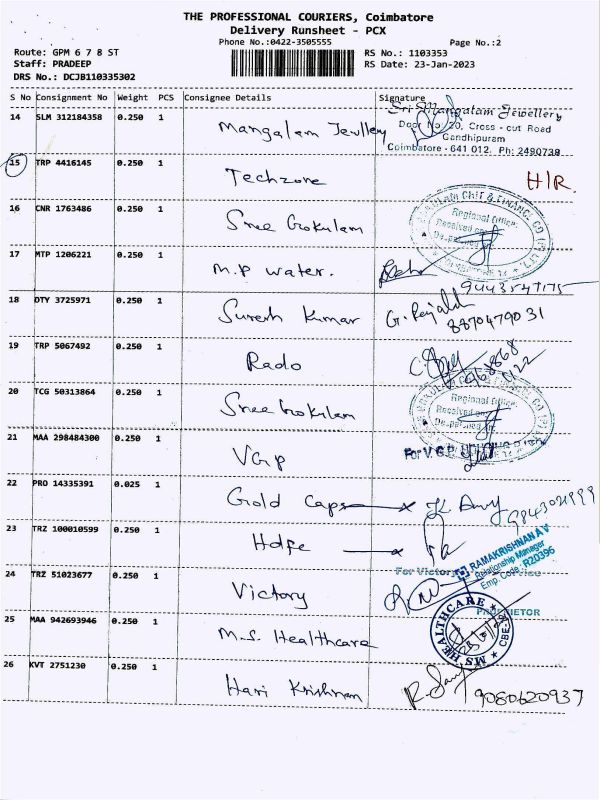 THE PROFESSIONAL COURIERS, Coimbatore
Delivery Runsheet - PCX
Phone No.:0422-3505555
Page No.:2
Route: GPM 6 7 8 ST
RS No.: 1103353
Staff: PRADEEP
RS Date: 23-Jan-2023
DRS No.: DCJB110335302
S No Consignment No Weight PCS Consignee Details Signature
14 SLM 312184358 0.250 1 Mangalam Jewlley
Sri Mangalam Jewellery
Door No 20, Cross - cut Road
Gandhipuram
Coimbatore - 641 012. Ph: 2490738
15 TRP 4416145 0.250 1 Techzone H/R.
16 CNR 1763486 0.250 1 Sree Gokulam
Regional Office
17 MTP 1206221 0.250 1 M.P water.
9443547175
18 DTY 3725971 0.250 1 Suresh Kumar
8870479031
19 TRP 5067492 0.250 1 Rado
20 TCG 50313864 0.250 1 Sree Gokulam
Regional Office
21 MAA 298484300 0.250 1 VGP
For V.G.P
22 PRO 14335391 0.025 1 Gold Caps
23 TRZ 100010599 0.250 1 Hdfc
RAMAKRISHNAN A V
Relationship Manager
Emp. Code: R20396
24 TRZ 51023677 0.250 1 Victory
For Victory
PROPRIETOR
25 MAA 942693946 0.250 1 M.S. Healthcare
MS HEALTHCARE CBE
26 KVT 2751230 0.250 1 Hari Krishnan
9080620937